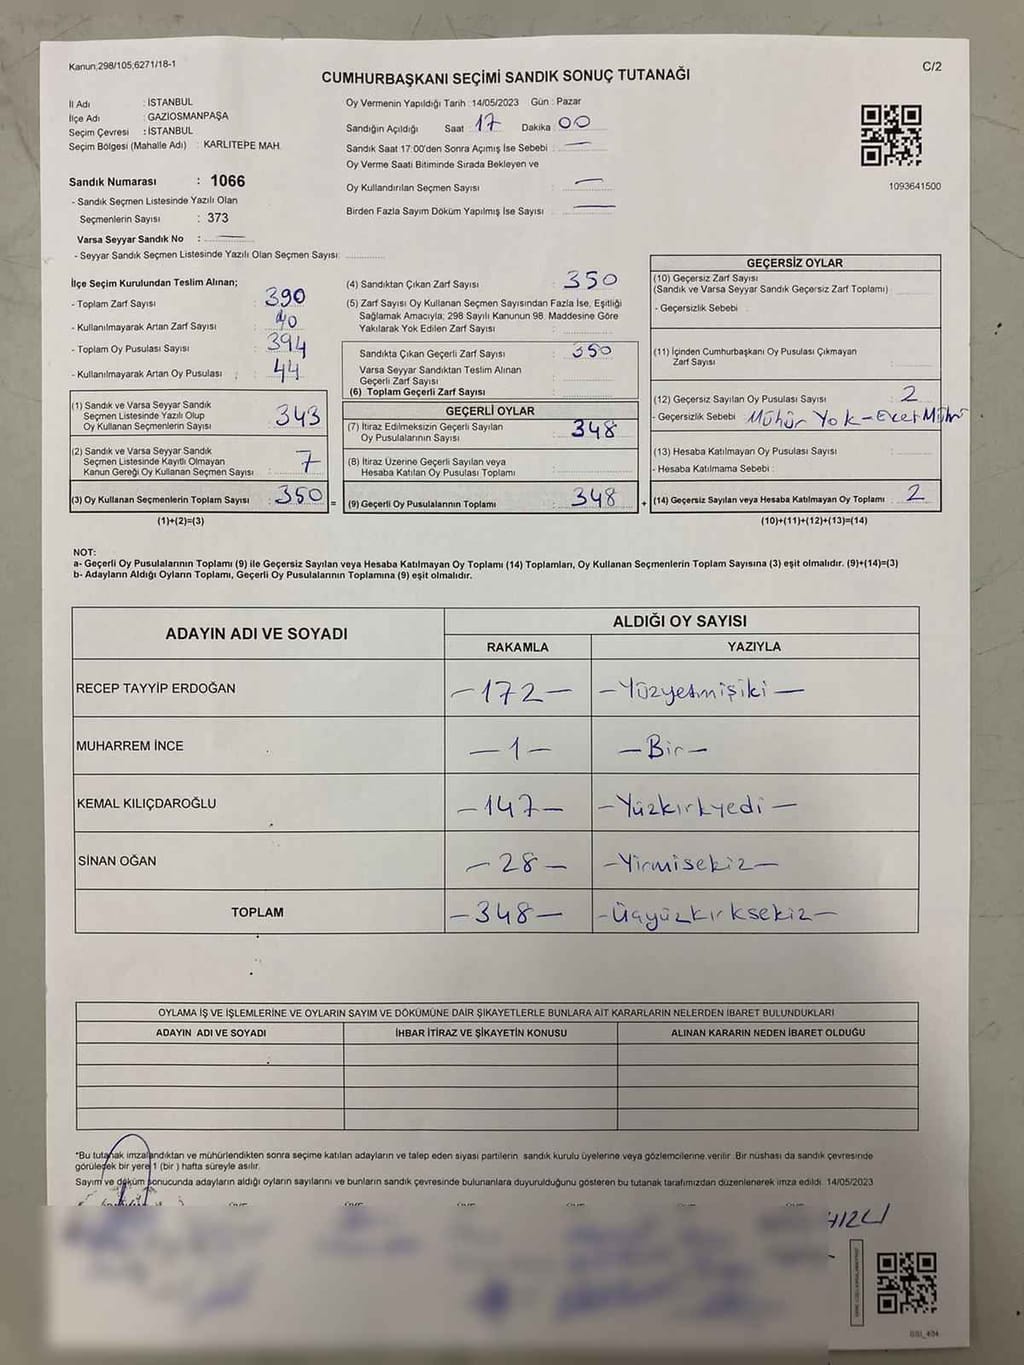 Kanun;298/105,6271/18-1
C/2
CUMHURBAŞKANI SEÇİMİ SANDIK SONUÇ TUTANAĞI
İl Adı : İSTANBUL
İlçe Adı : GAZİOSMANPAŞA
Seçim Çevresi : İSTANBUL
Seçim Bölgesi (Mahalle Adı) : KARLITEPE MAH.
Sandık Numarası : 1066
- Sandık Seçmen Listesinde Yazılı Olan
Seçmenlerin Sayısı : 373
Varsa Seyyar Sandık No :
- Seyyar Sandık Seçmen Listesinde Yazılı Olan Seçmen Sayısı:
Oy Vermenin Yapıldığı Tarih :14/05/2023 Gün : Pazar
Sandığın Açıldığı Saat 17 Dakika : 00
Sandık Saat 17:00'den Sonra Açımış İse Sebebi :
Oy Verme Saati Bitiminde Sırada Bekleyen ve
Oy Kullandırılan Seçmen Sayısı :
Birden Fazla Sayım Döküm Yapılmış İse Sayısı :
1093641500
İlçe Seçim Kurulundan Teslim Alınan;
- Toplam Zarf Sayısı : 390
- Kullanılmayarak Artan Zarf Sayısı : 40
- Toplam Oy Pusulası Sayısı : 394
- Kullanılmayarak Artan Oy Pusulası : 44
(1) Sandık ve Varsa Seyyar Sandık
Seçmen Listesinde Yazılı Olup
Oy Kullanan Seçmenlerin Sayısı : 343
(2) Sandık ve Varsa Seyyar Sandık
Seçmen Listesinde Kayıtlı Olmayan
Kanun Gereği Oy Kullanan Seçmen Sayısı : 7
(3) Oy Kullanan Seçmenlerin Toplam Sayısı : 350 =
(1)+(2)=(3)
(4) Sandıktan Çıkan Zarf Sayısı : 350
(5) Zarf Sayısı Oy Kullanan Seçmen Sayısından Fazla İse, Eşitliği
Sağlamak Amacıyla; 298 Sayılı Kanunun 98. Maddesine Göre
Yakılarak Yok Edilen Zarf Sayısı :
Sandıkta Çıkan Geçerli Zarf Sayısı : 350
Varsa Seyyar Sandıktan Teslim Alınan
Geçerli Zarf Sayısı :
(6) Toplam Geçerli Zarf Sayısı :
GEÇERLİ OYLAR
(7) İtiraz Edilmeksizin Geçerli Sayılan
Oy Pusulalarının Sayısı : 348
(8) İtiraz Üzerine Geçerli Sayılan veya
Hesaba Katılan Oy Pusulası Toplamı :
(9) Geçerli Oy Pusulalarının Toplamı : 348 +
GEÇERSİZ OYLAR
(10) Geçersiz Zarf Sayısı
(Sandık ve Varsa Seyyar Sandık Geçersiz Zarf Toplamı) :
- Geçersizlik Sebebi :
(11) İçinden Cumhurbaşkanı Oy Pusulası Çıkmayan
Zarf Sayısı :
(12) Geçersiz Sayılan Oy Pusulası Sayısı : 2
- Geçersizlik Sebebi : Mühür Yok-Evet Mührü
(13) Hesaba Katılmayan Oy Pusulası Sayısı :
- Hesaba Katılmama Sebebi :
(14) Geçersiz Sayılan veya Hesaba Katılmayan Oy Toplamı : 2
(10)+(11)+(12)+(13)=(14)
NOT:
a- Geçerli Oy Pusulalarının Toplamı (9) ile Geçersiz Sayılan veya Hesaba Katılmayan Oy Toplamı (14) Toplamları, Oy Kullanan Seçmenlerin Toplam Sayısına (3) eşit olmalıdır. (9)+(14)=(3)
b- Adayların Aldığı Oyların Toplamı, Geçerli Oy Pusulalarının Toplamına (9) eşit olmalıdır.
ADAYIN ADI VE SOYADI
ALDIĞI OY SAYISI
RAKAMLA YAZIYLA
RECEP TAYYİP ERDOĞAN -172- -Yüzyetmişiki-
MUHARREM İNCE -1- -Bir-
KEMAL KILIÇDAROĞLU -147- -Yüzkırkyedi-
SİNAN OĞAN -28- -Yirmisekiz-
TOPLAM -348- -Üçyüzkırksekiz-
OYLAMA İŞ VE İŞLEMLERİNE VE OYLARIN SAYIM VE DÖKÜMÜNE DAİR ŞİKAYETLERLE BUNLARA AİT KARARLARIN NELERDEN İBARET BULUNDUKLARI
ADAYIN ADI VE SOYADI İHBAR İTİRAZ VE ŞİKAYETİN KONUSU ALINAN KARARIN NEDEN İBARET OLDUĞU
*Bu tutanak imzalandıktan ve mühürlendikten sonra seçime katılan adayların ve talep eden siyasi partilerin sandık kurulu üyelerine veya gözlemcilerine verilir. Bir nüshası da sandık çevresinde
görülecek bir yere 1 (bir ) hafta süreyle asılır.
Sayım ve döküm sonucunda adayların aldığı oyların sayılarını ve bunların sandık çevresinde bulunanlara duyurulduğunu gösteren bu tutanak tarafımızdan düzenlenerek imza edildi. 14/05/2023